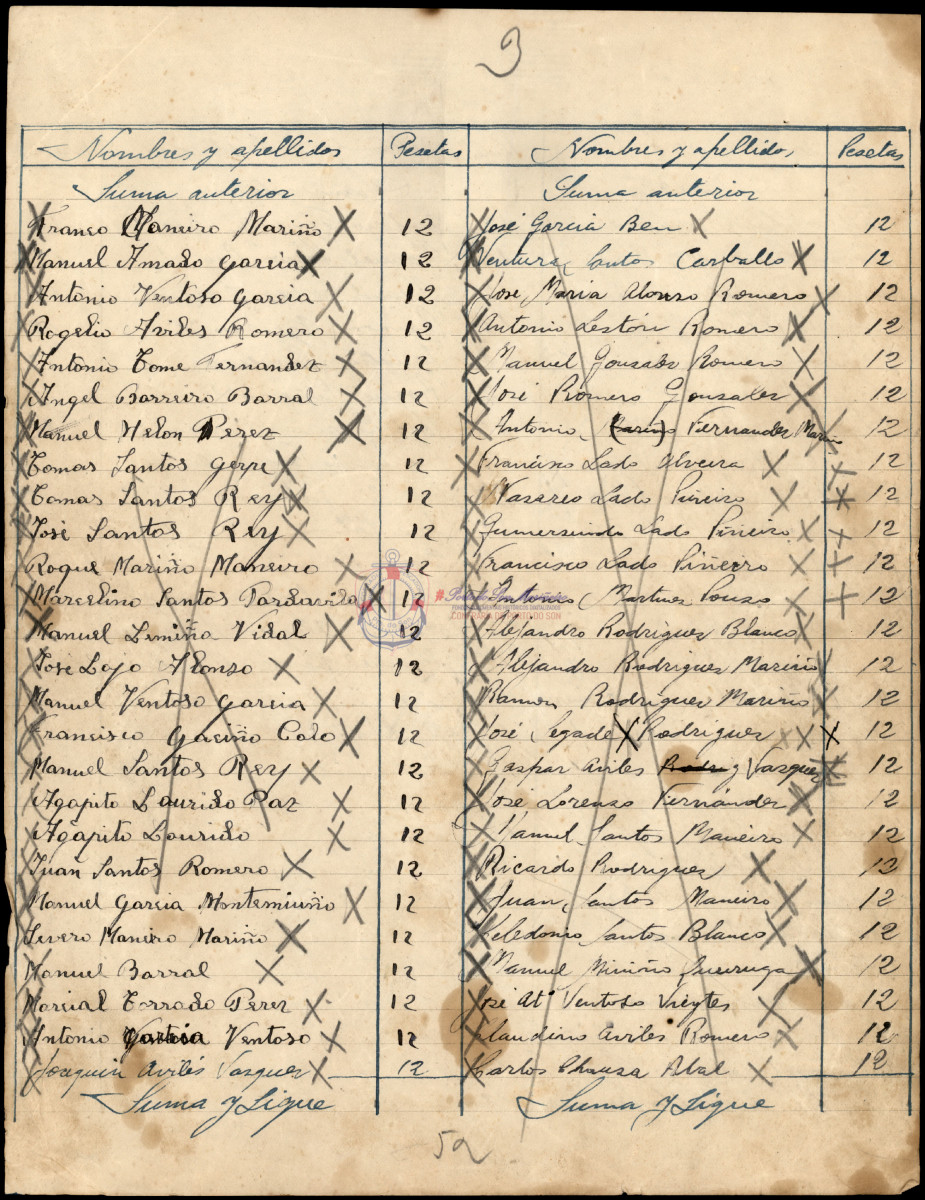 3
Nombres y apellidos Pesetas
Suma anterior
Franco Maneiro Mariño 12
Manuel Amado Garcia 12
Antonio Ventoso Garcia 12
Rogelio Aviles Romero 12
Antonio Tome Fernandez 12
Angel Barreiro Barral 12
Manuel Melon Perez 12
Tomas Santos Gerre 12
Tomas Santos Rey 12
José Santos Rey 12
Roque Mariño Maneiro 12
Marcelino Santos 12
Manuel Lemiña Vidal 12
Jose Lojo Alonso 12
Manuel Ventoso Garcia 12
Francisco Gaciño 12
Manuel Santos Rey 12
Agapito Lourido Paz 12
Agapito Lourido 12
Juan Santos Romero 12
Manuel Garcia Montemiuño 12
Severo Maneiro Mariño 12
Manuel Barral 12
Marcial Torrado Perez 12
Antonio Ventoso 12
Joaquin Avilés Vasquez 12
Suma y Sigue
Nombres y apellidos, Pesetas
Suma anterior
José Garcia Ben 12
Ventura Santos Carballo 12
José Maria Alonso Romero 12
Antonio Lestón Romero 12
Manuel Gonsales Romero 12
José Romero Gonsales 12
Antonio Fernandes Mariño 12
Francisco Lado Olveira 12
Lado Piñeiro 12
Gumersindo Lado Piñeiro 12
Francisco Lado Piñeiro 12
Antonio Martines Pouso 12
Alejandro Rodrigues Blanco 12
Alejandro Rodrigues Mariño 12
Ramon Rodrigues Mariño 12
José Segade Rodrigues 12
Gaspar Aviles Vasques 12
José Lorenso Fernándes 12
Manuel Santos Maneiro 12
Ricardo Rodrigues 12
Juan Santos Maneiro 12
Celedonio Santos Blanco 12
Manuel Miniño Queiruga 12
José Ventoso Vieytes 12
Claudino Aviles Romero 12
Carlos Chouza Abal 12
Suma y Sigue
52